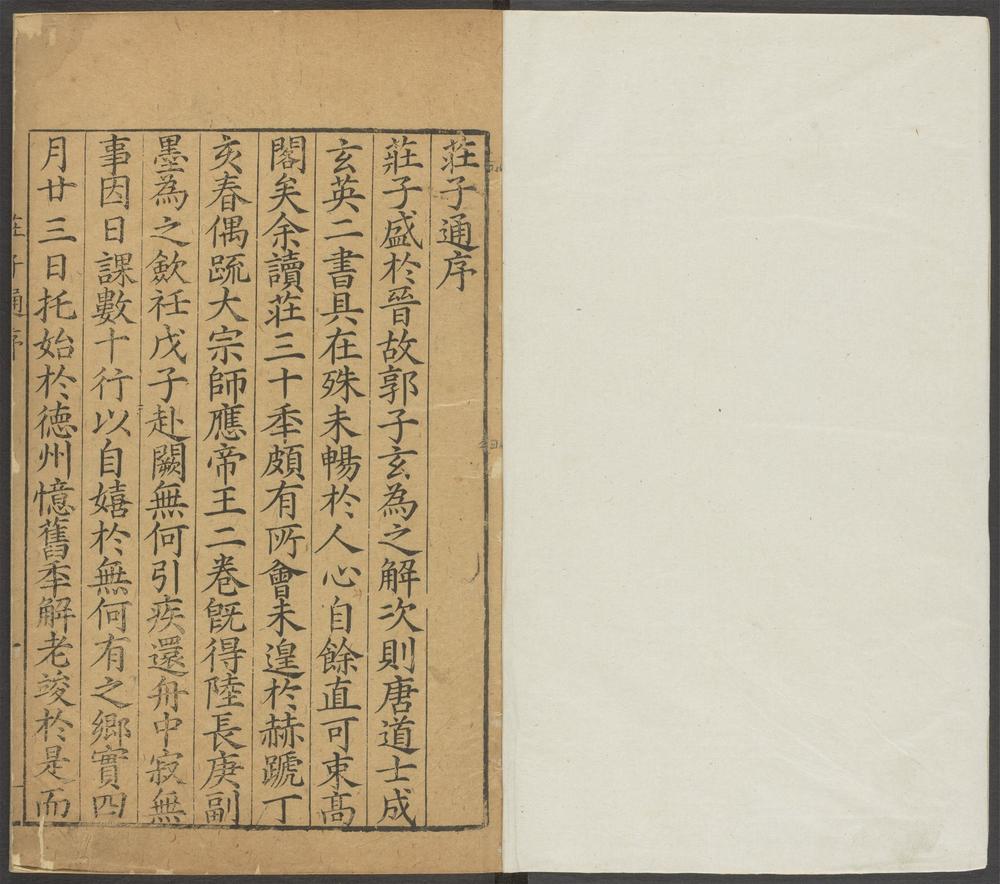 莊子通序
莊子盛於晉故郭子玄為之解次則唐道士成
玄英二書具在殊未暢於人心自餘直可束高
閣矣余讀莊三十秊頗有所會未遑於赫蹏丁
亥春偶䟽大宗師應帝王二卷旣得陸長庚副
墨為之歛衽戊子赴闕無何引疾還舟中寂無
事因日課數十行以自嬉於無何有之鄉實四
月廿三日托始於德州憶舊秊解老竣於是而
莊子通序